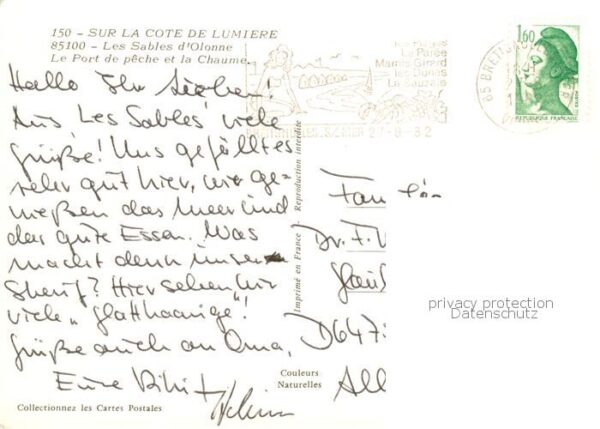 150 - SUR LA COTE DE LUMIERE
85100 - Les Sables d'Olonne
Le Port de pêche et la Chaume.
La Parée
Marais Girard
les Dunes
La Sauzaie
27-8-82
85 BRETIGNOLLES
1,60
REPUBLIQUE FRANCAISE
Hallo Ihr Lieben!
Aus "Les Sables" viele
Grüße! Uns gefällt es
sehr gut hier, wir ge-
nießen das Meer und
das gute Essen. Was
macht denn unser
Sherif? Hier sehen wir
viele "Glatthaarige"!
Grüße auch an Oma,
Eure
Imprimé en France - Reproduction interdite
Fam
Dr. F.
D647
All
privacy protection
Datenschutz
Couleurs
Naturelles
Collectionnez les Cartes Postales